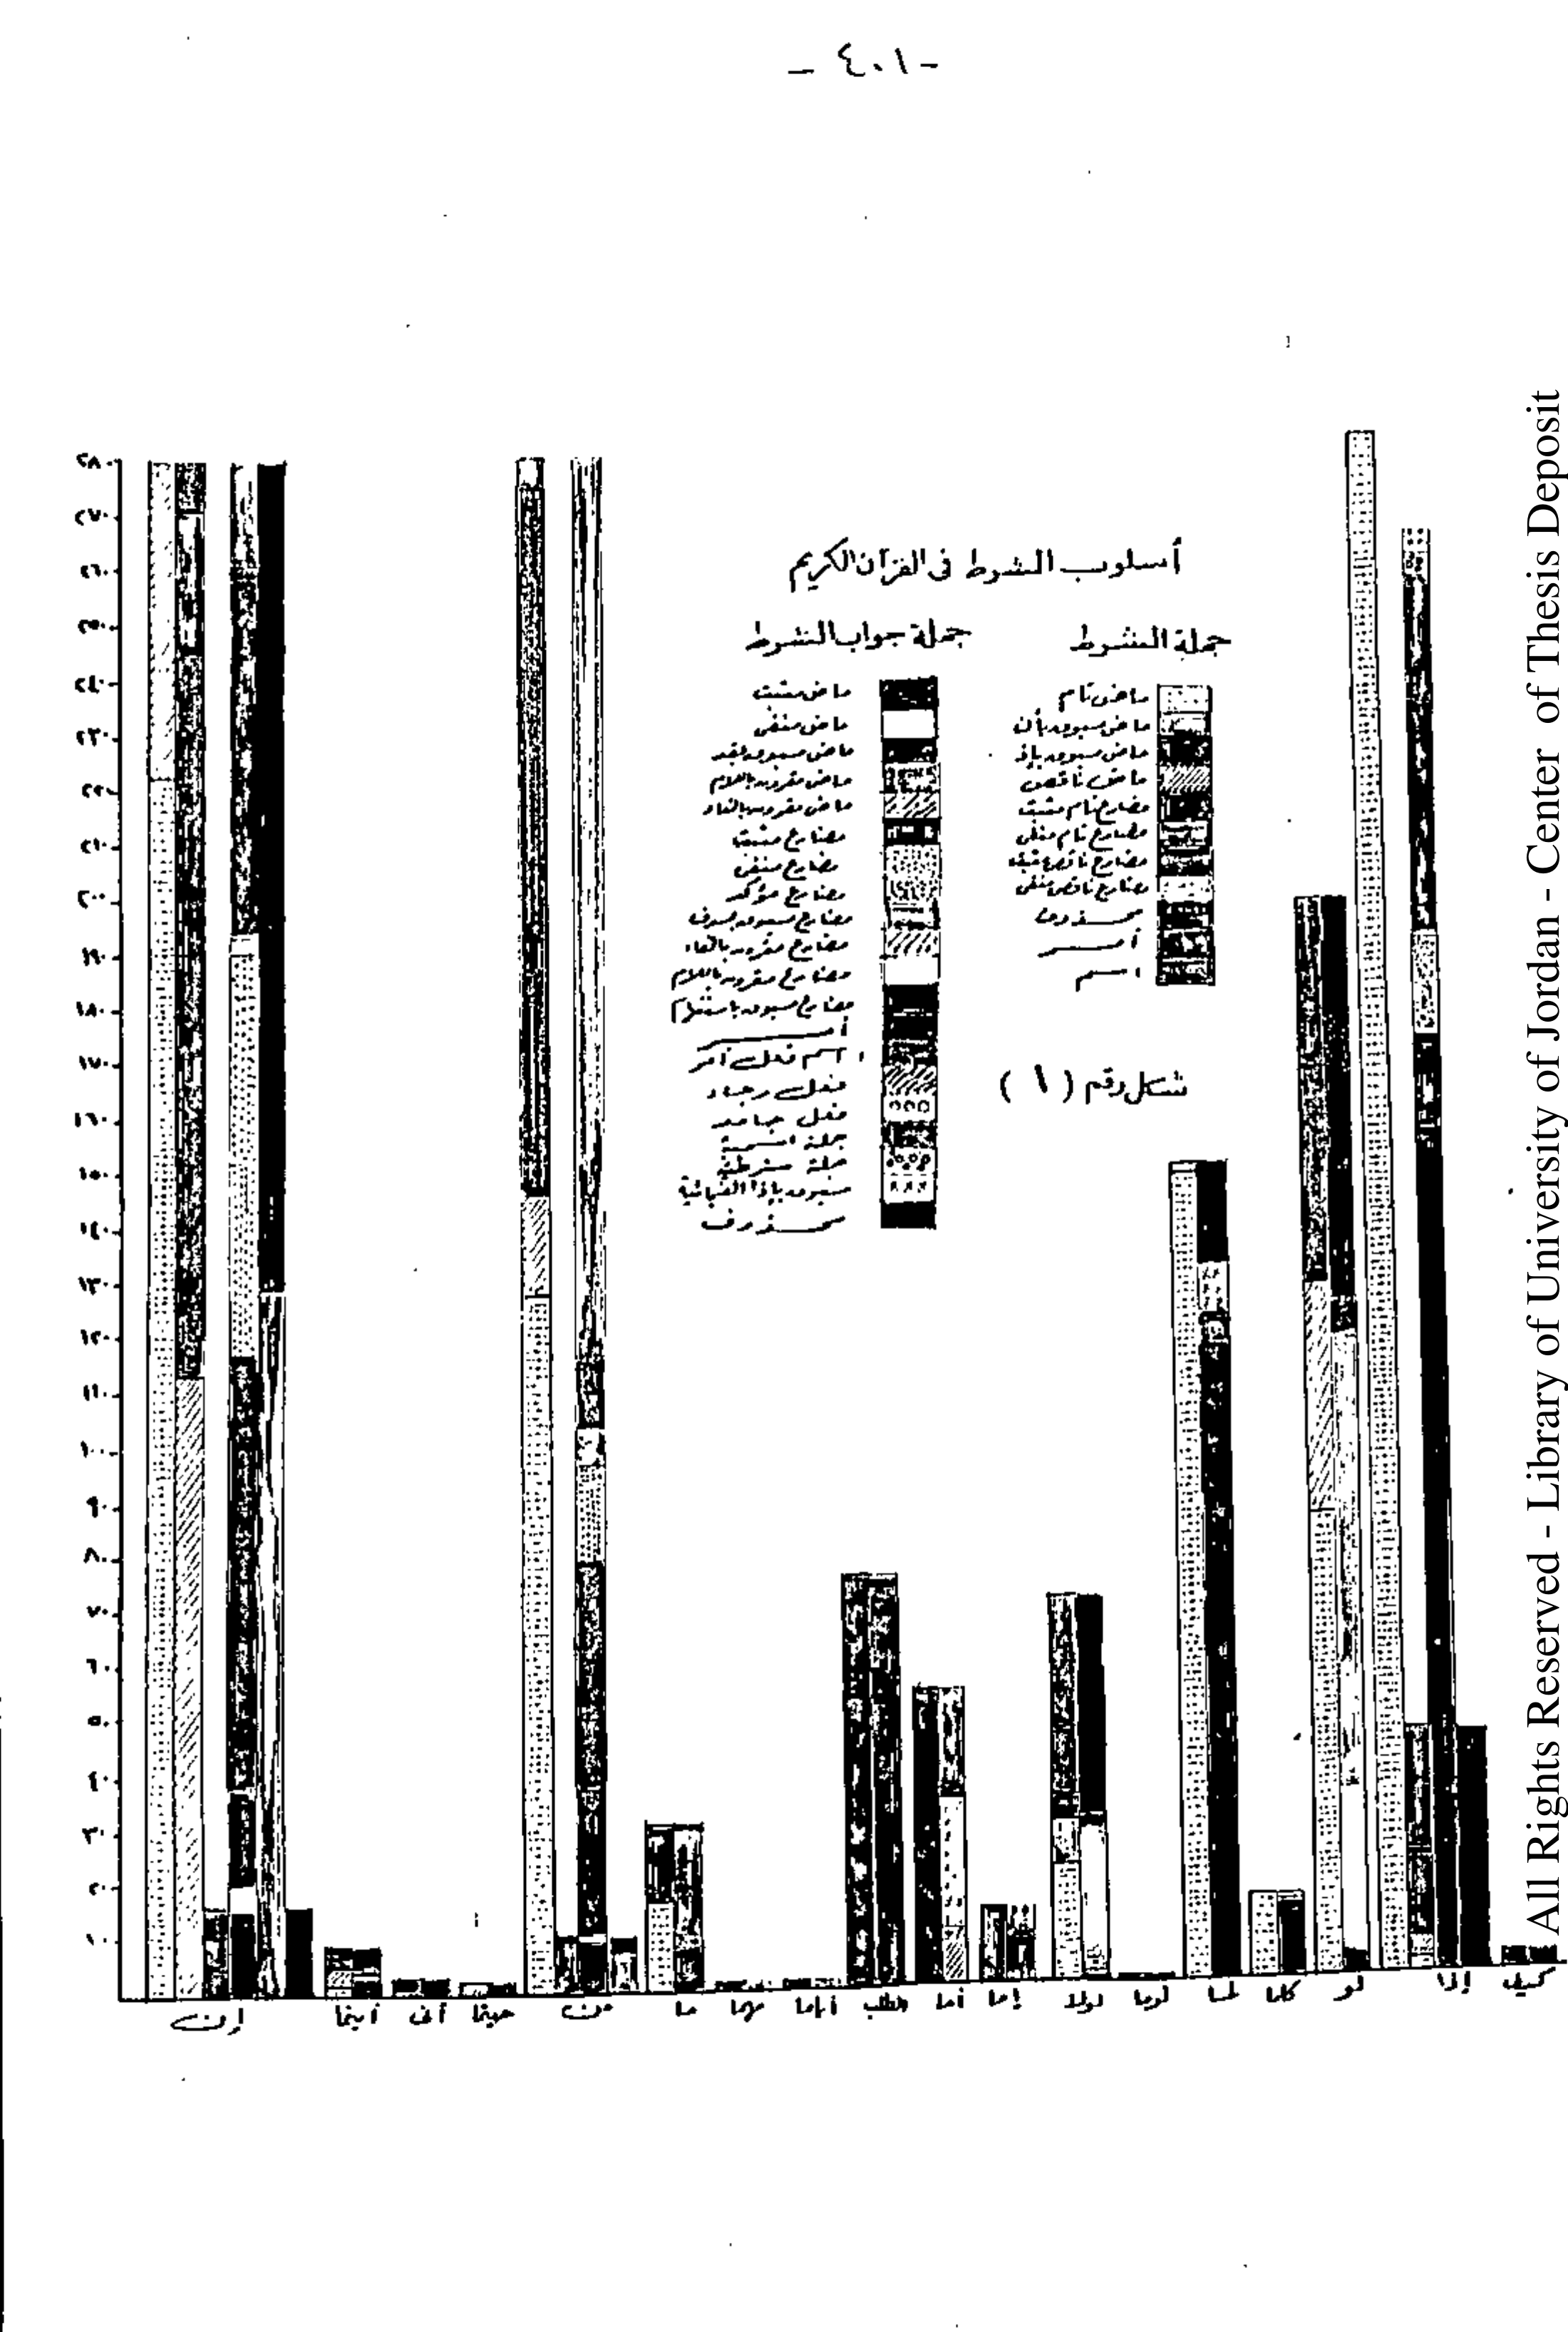 - ٤٠١ -
أسلوب الشرط فى القرآن الكريم
جملة الشرط
ماض تام
ماض مسبوق بأن
ماض مسبوق بإذ
ماض ناقص
مضارع تام مثبت
مضارع تام منفى
مضارع ناقص مثبت
مضارع ناقص منفى
محذوف
أمر
اسم
جملة جواب الشرط
ماض مثبت
ماض منفى
ماض مسبوق بقد
ماض مقرون باللام
ماض مقرون بالفاء
مضارع مثبت
مضارع منفى
مضارع مؤكد
مضارع مسبوق بسوف
مضارع مقرون بالفاء
مضارع مقرون باللام
مضارع مسبوق باستفهام
أمر
اسم فعل أمر
فعل رجاء
فعل جامد
جملة اسمية
جملة شرطية
مسبوق بإذا الفجائية
محذوف
شكل رقم (١)
٢٨٠
٢٧٠
٢٦٠
٢٥٠
٢٤٠
٢٣٠
٢٢٠
٢١٠
٢٠٠
١٩٠
١٨٠
١٧٠
١٦٠
١٥٠
١٤٠
١٣٠
١٢٠
١١٠
١٠٠
٩٠
٨٠
٧٠
٦٠
٥٠
٤٠
٣٠
٢٠
١٠
إن أينما أنى حيثما من ما مهما أياما الطلب أما إما لولا لوما لما كلما لو إذا كيف
All Rights Reserved - Library of University of Jordan - Center of Thesis Deposit